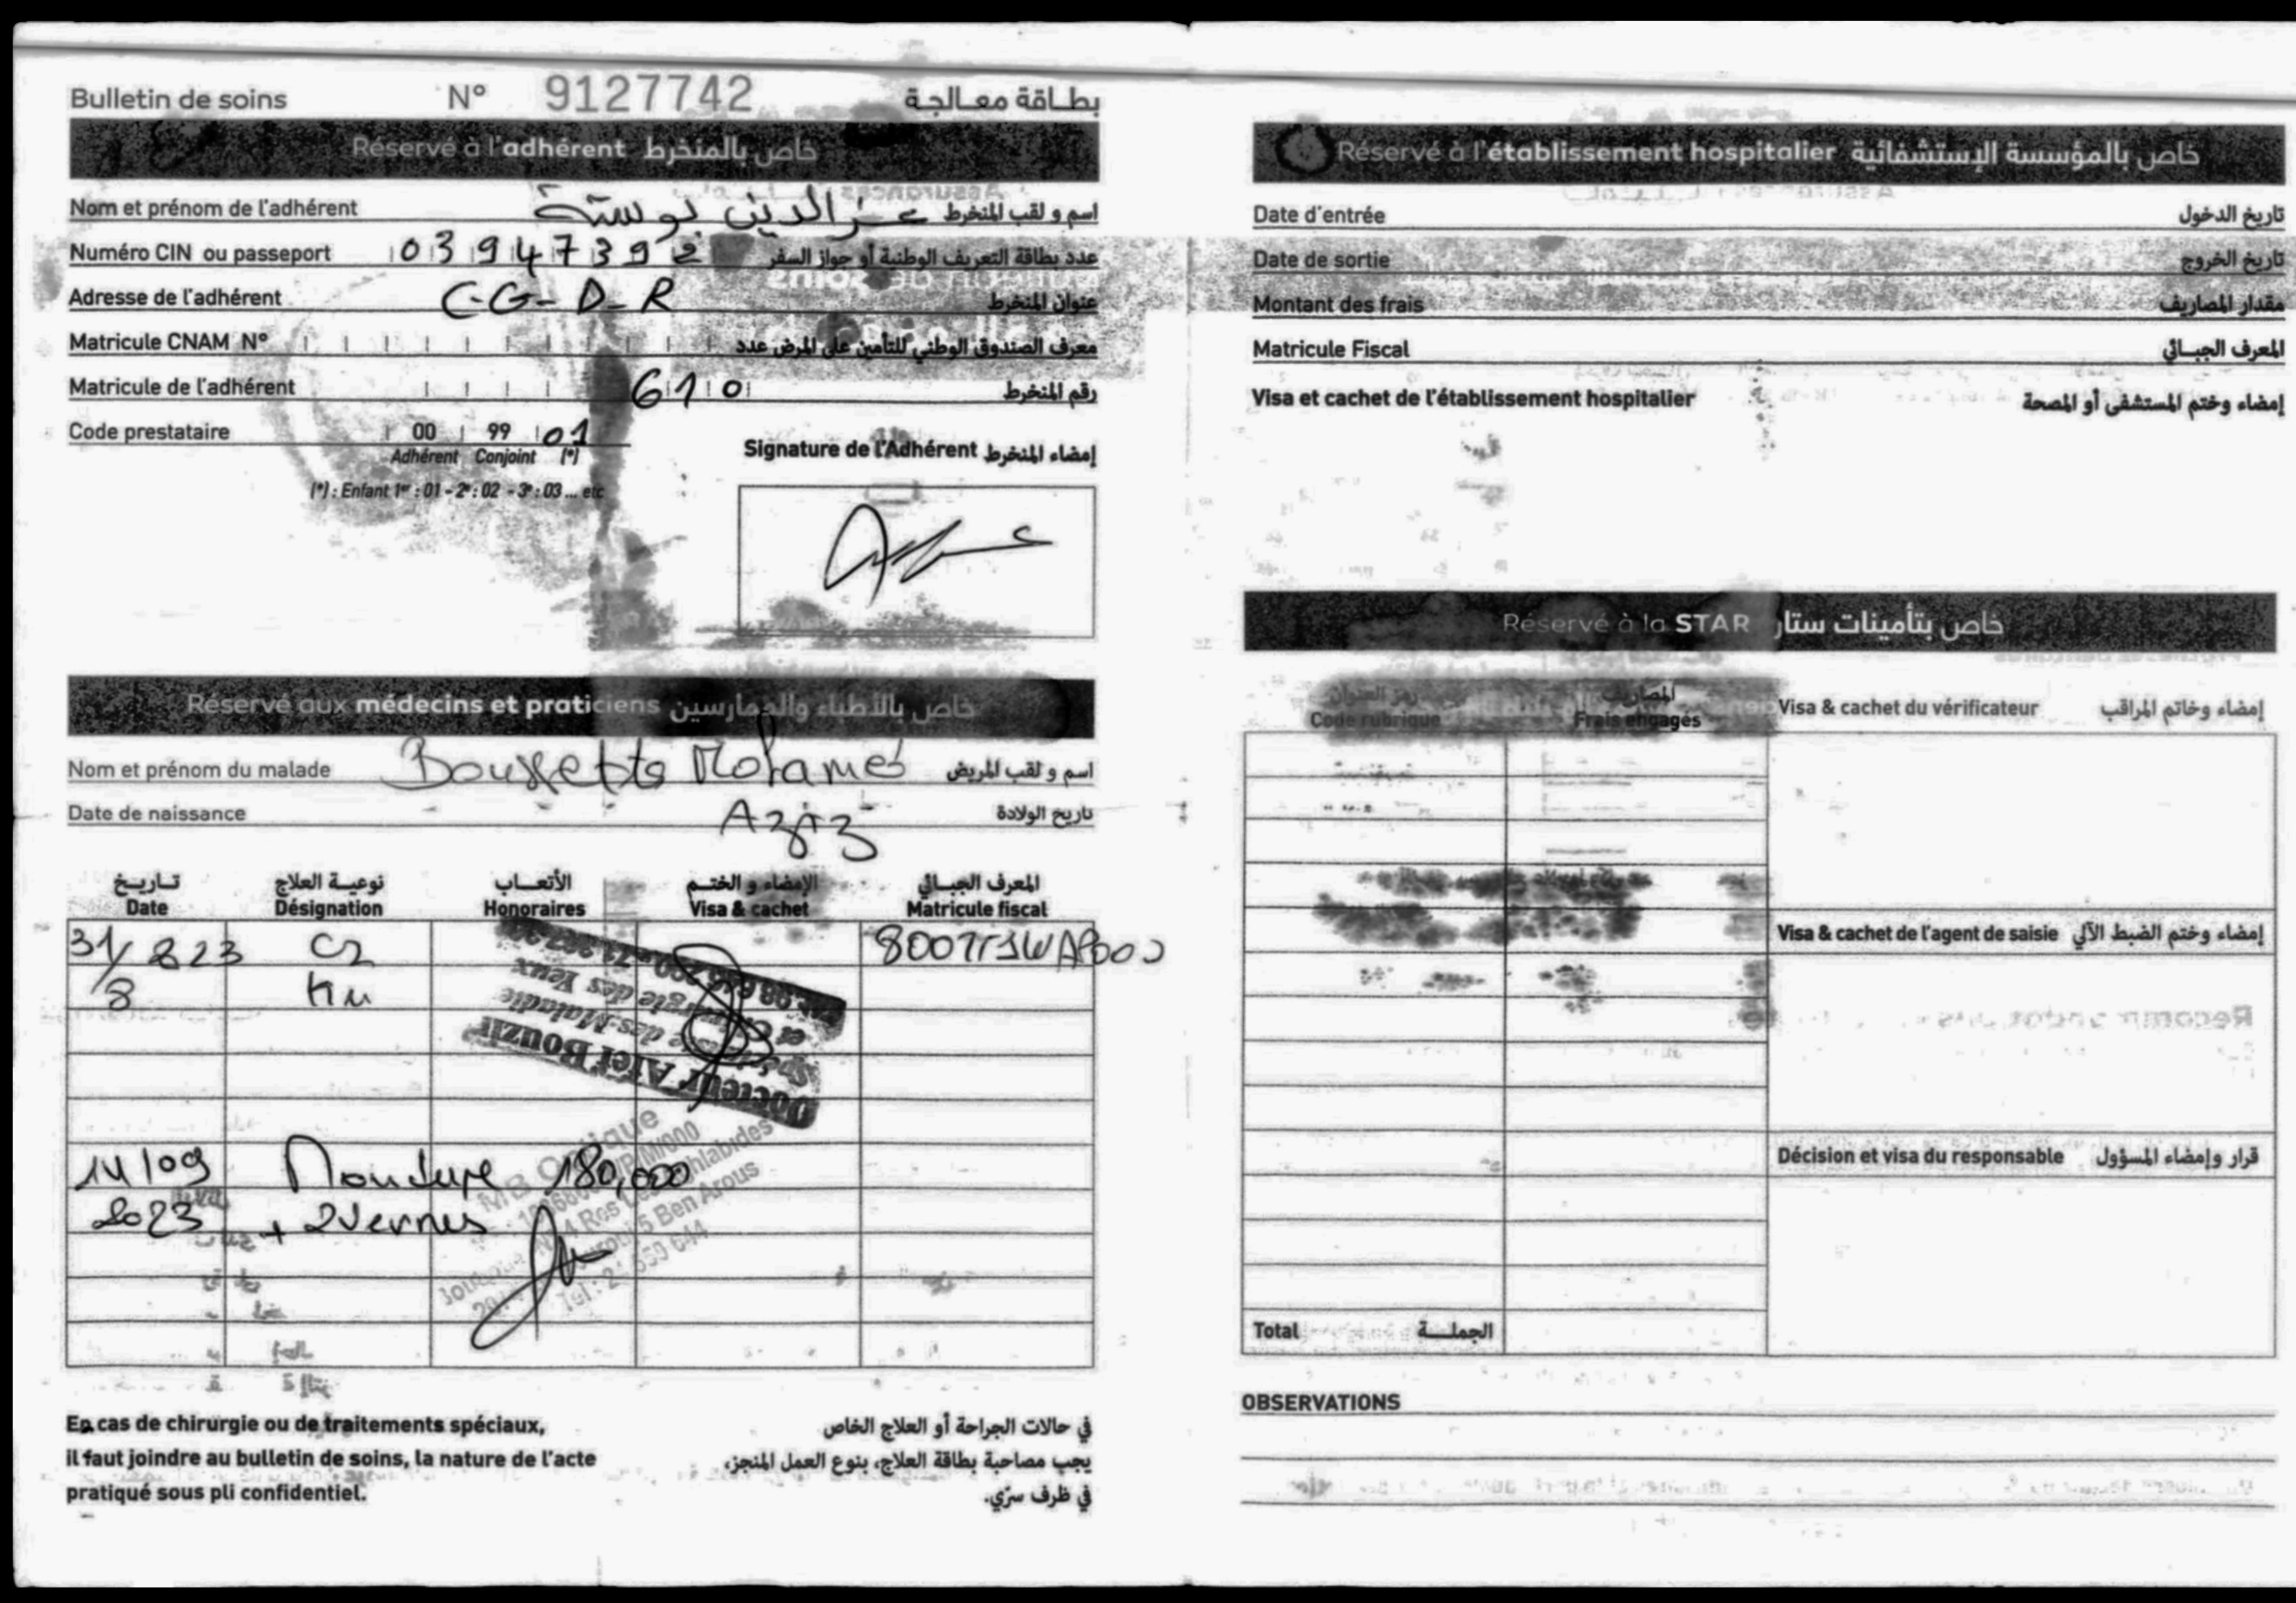 Bulletin de soins N° 9127742 بطاقة معالجة
Réservé à l'adhérent خاص بالمنخرط
Nom et prénom de l'adhérent عز الدين بوستة اسم و لقب المنخرط
Numéro CIN ou passeport 03947392 عدد بطاقة التعريف الوطنية أو جواز السفر
Adresse de l'adhérent C-G-D-R عنوان المنخرط
Matricule CNAM N° معرف الصندوق الوطني للتأمين على المرض عدد
Matricule de l'adhérent 610 رقم المنخرط
Code prestataire 00 99 01
Adhérent Conjoint (*)
(*) : Enfant 1er : 01 - 2e : 02 - 3e : 03 ... etc
Signature de l'Adhérent إمضاء المنخرط
Réservé aux médecins et praticiens خاص بالأطباء والممارسين
Nom et prénom du malade Boussetta Mohamed اسم و لقب المريض
Date de naissance Aziz تاريخ الولادة
تاريخ نوعية العلاج الأتعاب الإمضاء و الختم المعرف الجبائي
Date Désignation Honoraires Visa & cachet Matricule fiscal
31/8 23 C2
/8
Docteur Afef Bouzir
Spécialiste des Maladie
et Chirurgie des Yeux
14/09 Monture 180,000
2023 + 2 verres
MB Optique
Ben Arous
En cas de chirurgie ou de traitements spéciaux,
il faut joindre au bulletin de soins, la nature de l'acte
pratiqué sous pli confidentiel.
في حالات الجراحة أو العلاج الخاص
يجب مصاحبة بطاقة العلاج، بنوع العمل المنجز،
في ظرف سرّي.
Réservé à l'établissement hospitalier خاص بالمؤسسة الإستشفائية
Date d'entrée تاريخ الدخول
Date de sortie تاريخ الخروج
Montant des frais مقدار المصاريف
Matricule Fiscal المعرف الجبائي
Visa et cachet de l'établissement hospitalier إمضاء وختم المستشفى أو المصحة
Réservé à la STAR خاص بتأمينات ستار
رمز العنوان المصاريف
Code rubrique Frais engagés Visa & cachet du vérificateur إمضاء وخاتم المراقب
Visa & cachet de l'agent de saisie إمضاء وختم الضبط الآلي
Décision et visa du responsable قرار وإمضاء المسؤول
Total الجملة
OBSERVATIONS